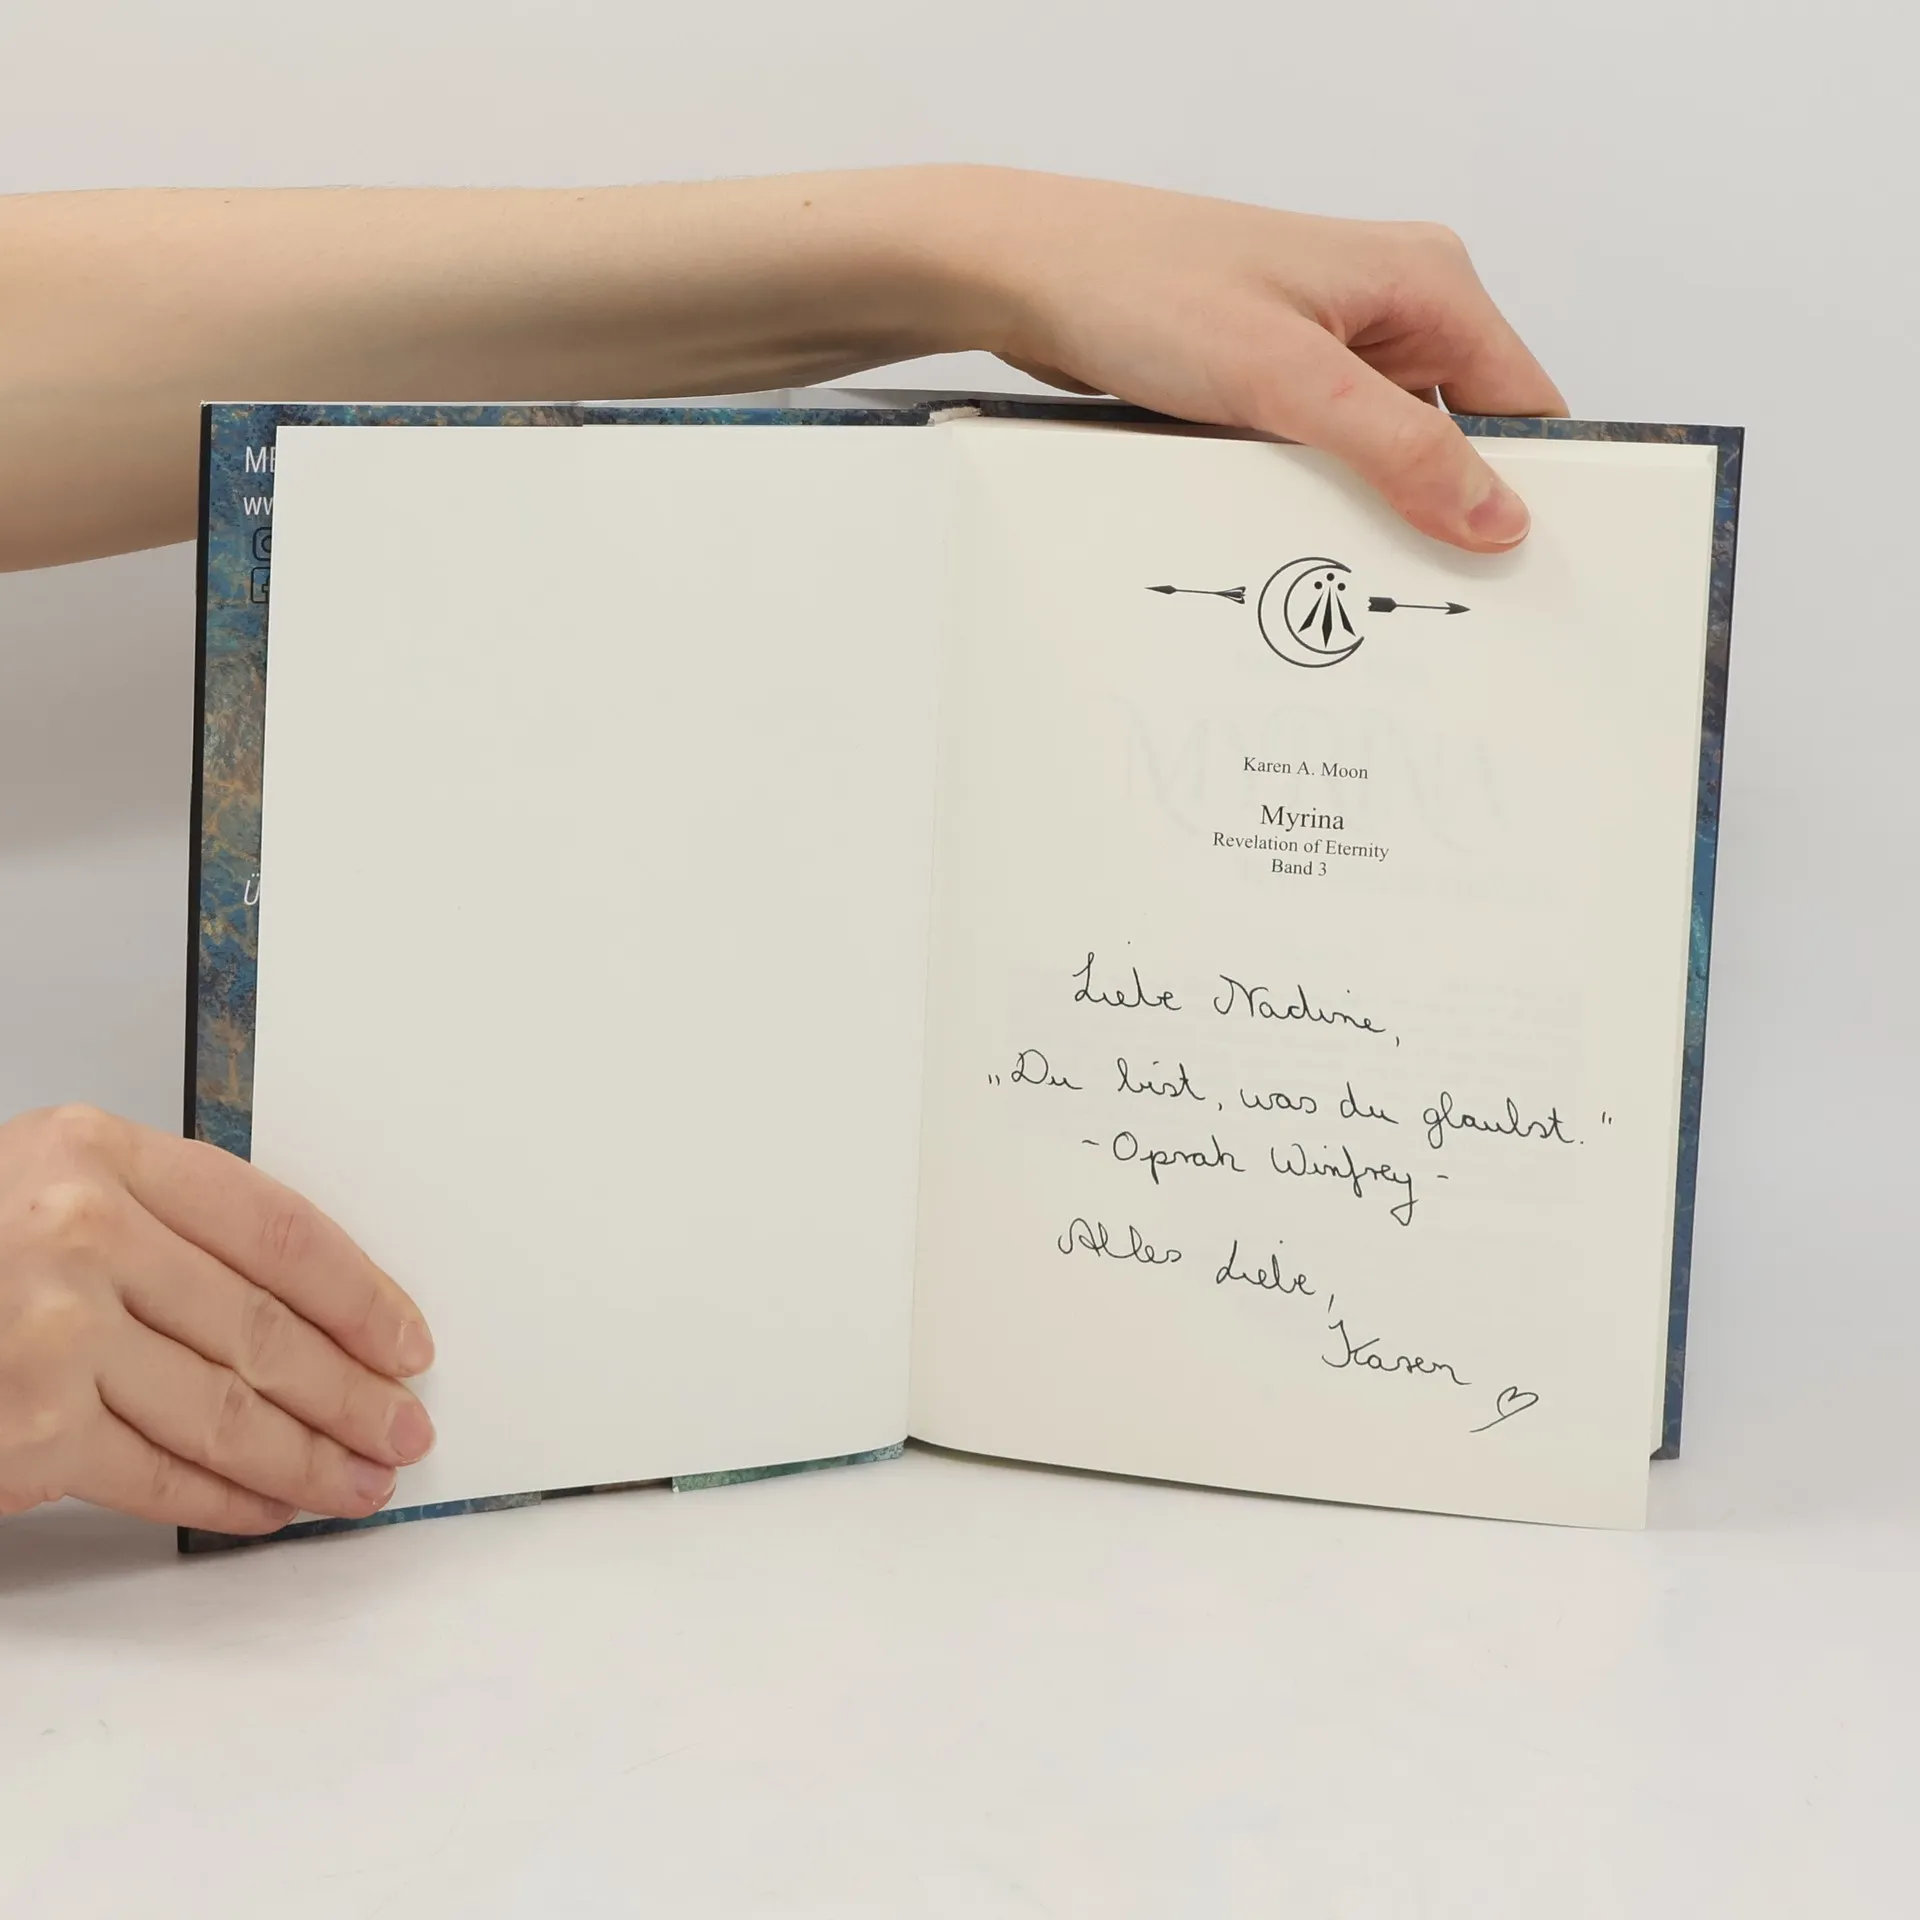 Karen A. Moon
Myrina
Revelation of Eternity
Band 3
Liebe Nadine,
„Du bist, was du glaubst."
- Oprah Winfrey -
Alles Liebe,
Karen